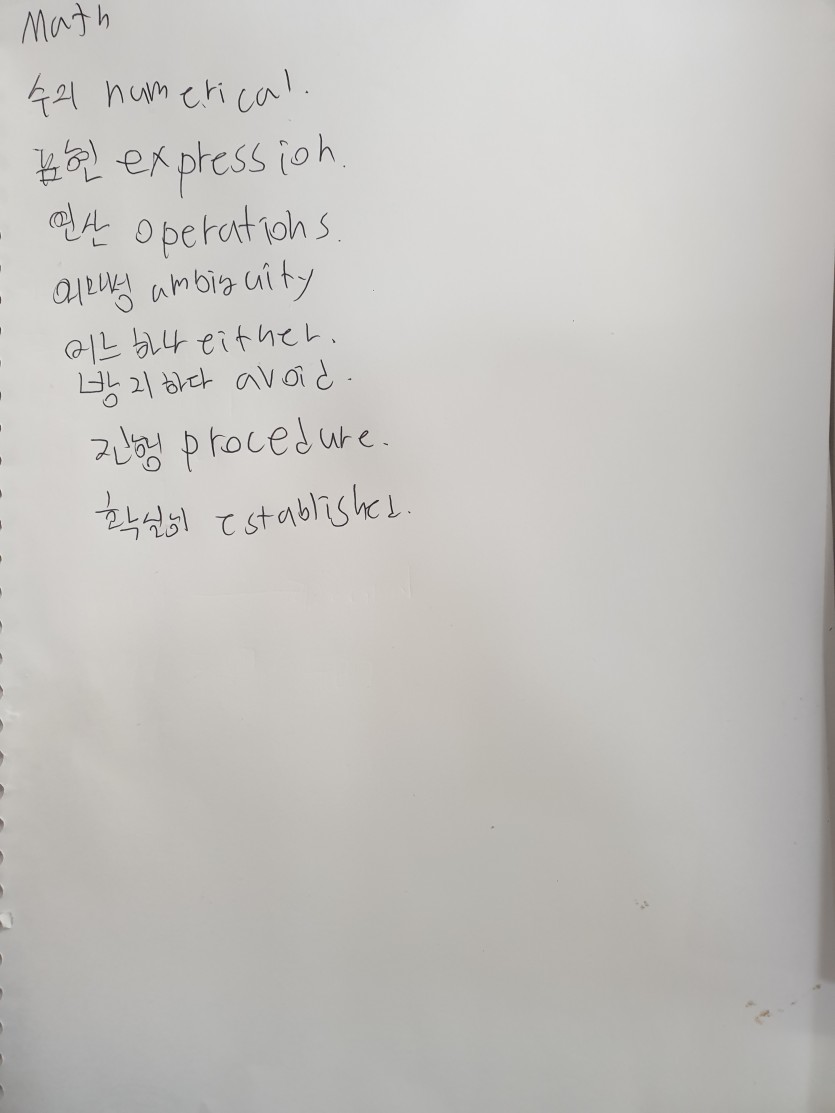 Math
수의 numerical.
표현 expression.
연산 operations.
ambiguity
어느 하나 either.
방지하다 avoid.
진행 procedure.
확실히 established.